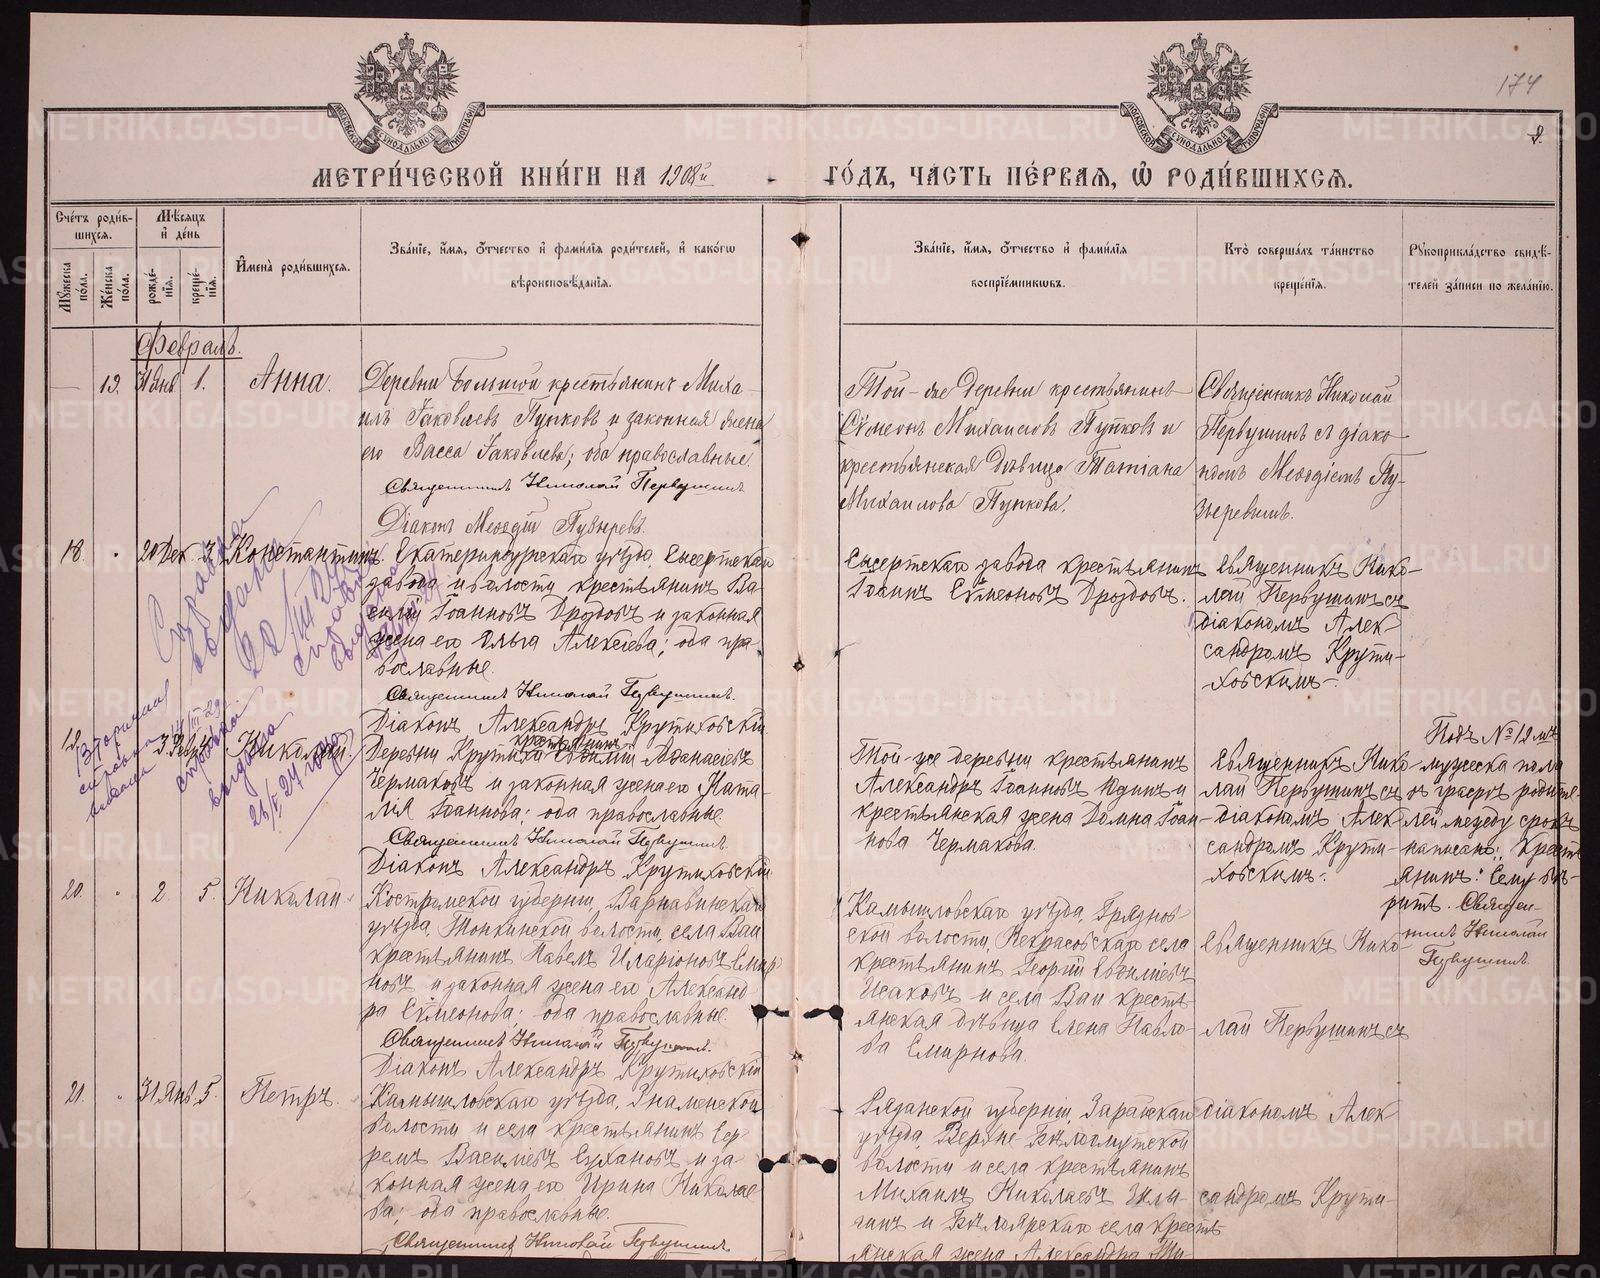 174
9.
МОСКОВСКОЙ СѴНОДАЛЬНОЙ ТИПОГРАФІИ
МОСКОВСКОЙ СѴНОДАЛЬНОЙ ТИПОГРАФІИ
МЕТРИ́ЧЕСКОЙ КНИ́ГИ НА 1908й ГО́ДЪ, ЧА́СТЬ ПЕ́РВАѦ, Ѡ҆ РОДИ́ВШИХСѦ.
Сче́тъ роди́в-
шихсѧ.
Мѹ́жеска по́ла.
Же́нска по́ла.
Мѣ́сѧцъ
и҆ де́нь
рожде́-
нїѧ.
креще́-
нїѧ.
И҆мена̀ роди́вшихсѧ.
Зва́нїе, и҆́мѧ, ѻ҆́тчество и҆ фами́лїѧ роди́телей, и҆ како́гѡ
вѣроисповѣ́данїѧ.
Зва́нїе, и҆́мѧ, ѻ҆́тчество и҆ фами́лїѧ
воспрїе́мникѡвъ.
Кто̀ соверша́лъ та́инство
креще́нїѧ.
Рѹкоприкла́дство свидѣ́-
телей за́писи по жела́нїю.
Февраль.
— 19. 31 Янв 1. Анна.
Деревни Большой крестьянинъ Миха-
илъ Іаковлевъ Пупковъ и законная жена
его Васса Іаковлева; оба православные.
Священникъ Николай Первушинъ
Діаконъ Меѳодій Пузыревъ.
Той-же деревни крестьянинъ
Сѵмеонъ Михаиловъ Пупковъ и
крестьянская дѣвица Татіана
Михаилова Пупкова.
Священникъ Николай
Первушинъ съ діако-
номъ Меѳодіемъ Пу-
зыревымъ.
18. " 20 Дек. 3. Константинъ.
Екатеринбургскаго уѣзда, Сысертскаго
завода и волости крестьянинъ Ва-
силій Іоанновъ Дроздовъ и законная
жена его Ольга Алексѣева; оба пра-
вославные.
Священникъ Николай Первушинъ.
Діаконъ Александръ Крутиховскій.
Сысертскаго завода крестьянинъ
Іоаннъ Сѵмеоновъ Дроздовъ.
Священникъ Нико-
лай Первушинъ съ
діакономъ Алек-
сандромъ Крути-
ховскимъ.
Справка
выдана
20/III 24
справка
выдана
19. 3 Николай.
Деревни крестьянинъ Аѳанасіевъ
Чермаковъ и законная жена его Ната-
лія Іоаннова; оба православные.
Священникъ Николай Первушинъ.
Діаконъ Александръ Крутиховскій.
Той-же деревни крестьянинъ
Александръ Іоанновъ Юдинъ и
крестьянская жена Домна Іоан-
нова Чермакова.
Священникъ Нико-
лай Первушинъ съ
діакономъ Алек-
сандромъ Крути-
ховскимъ.
Подъ № 19 мъ
мужеска пола
въ графѣ родите-
лей между строкъ
написано: „кресть
янинъ.“ Сему вѣ-
рить. Священ-
никъ Николай
Первушинъ.
Вторичная
справка
справка
выдана
20. " 2. 5. Николай.
Костромской губерніи, Варнавинскаго
уѣзда, Тонкинской волости, села Ваи
крестьянинъ Павелъ Иларіоновъ Смир-
новъ и законная жена его Александ-
ра Сѵмеонова; оба православные.
Священникъ Николай Первушинъ.
Діаконъ Александръ Крутиховскій
Камышловскаго уѣзда, Грязнов-
ской волости, Некрасовскаго села
крестьянинъ Георгій Евсиліевъ
Исаковъ и села Ваи кресть-
янская дѣвица Елена Павло-
ва Смирнова.
Священникъ Нико-
лай Первушинъ съ
21. " 31 Янв 5. Петръ.
Камышловскаго уѣзда, Знаменской
волости и села крестьянинъ Сер-
гѣй Васильевъ Сухановъ и за-
конная жена его Ирина Николае-
ва; оба православные.
Священникъ Николай Первушинъ.
Рязанской губерніи, Зарайскаго
уѣзда, Верхне-Бѣлоомутской
волости и села крестьянинъ
Михаилъ Николаевъ
и Бѣлоярскаго села кресть-
янская жена Александра
діакономъ Алек
сандромъ Крути-